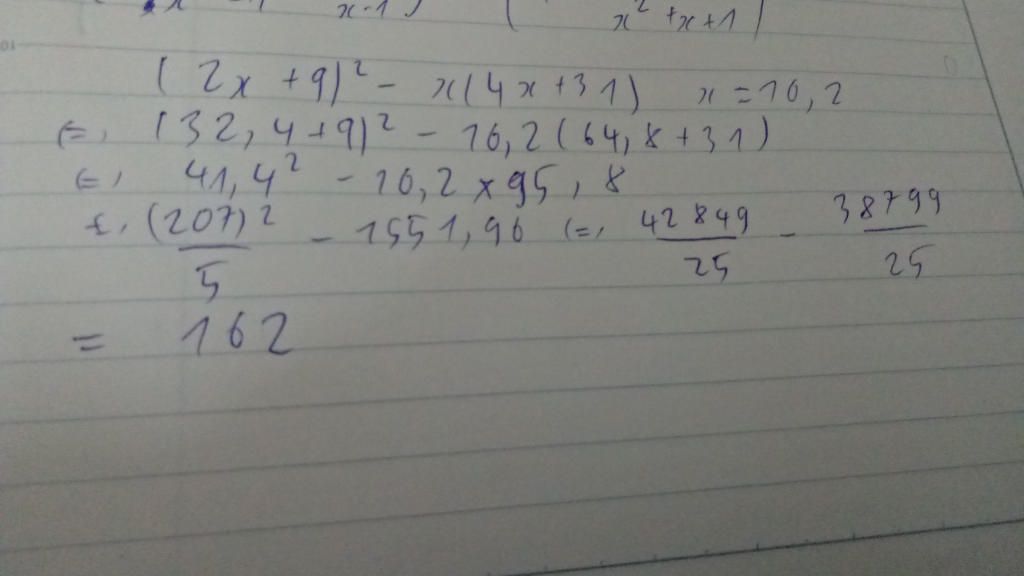 x-1) ( x² + x + 1 )
(2x + 9)² - x(4x + 31) x = 16,2
(=) (32,4 + 9)² - 16,2(64,8 + 31)
(=) 41,4² - 16,2 × 95,8
(207)²/5 - 1551,96 (=) 42849/25 - 38799/25
= 162